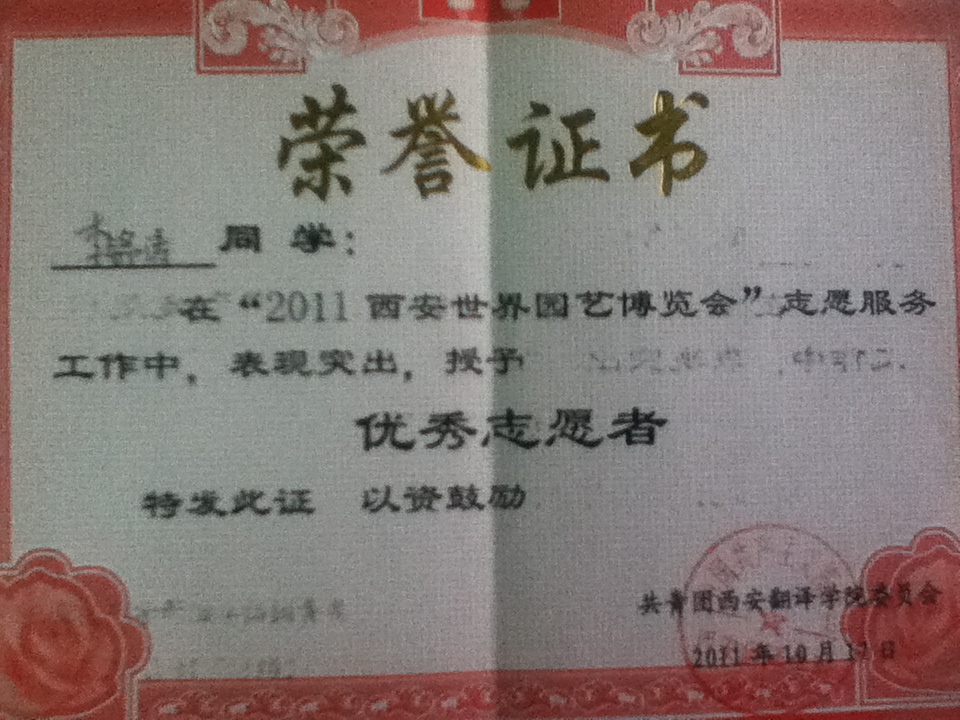 荣誉证书
同学：
在“2011西安世界园艺博览会”志愿服务
工作中，表现突出，授予
优秀志愿者
特发此证 以资鼓励
共青团西安翻译学院委员会
2011年10月 日